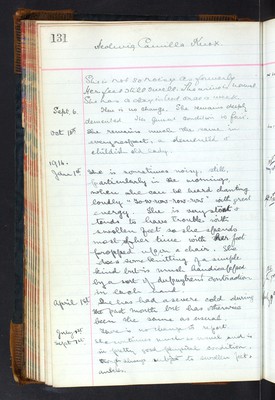 131
Hedwig Camilla Knox
She is not so noisy as formerly
Her feet still swell. The mind is
She has to sleep in bed once a week.
Sept. 6. There is no change. She remains deeply
demented. Her general condition is fair.
Oct 18th She remains much the same in
every respect, a demented &
childish old lady.
1916.
June 1st She is sometimes noisy, still,
particularly in the mornings,
when she can be heard chanting
loudly "row-row-row-row" with great
energy. She is very stout &
tends to have trouble with
swollen feet so she spends
most of her time with her feet
propped upon a chair. She
does some knitting of a simple
kind but is much handicapped
by a sort of Dupuytren's contraction
in each hand.
April 1st She has had a severe cold during
the past month but has otherwise
been the same as usual.
July 8th There is no change to report
Sept 7th She continues much as usual and is
in fairly good physical condition,
though being subject to swollen feet &
ankles.